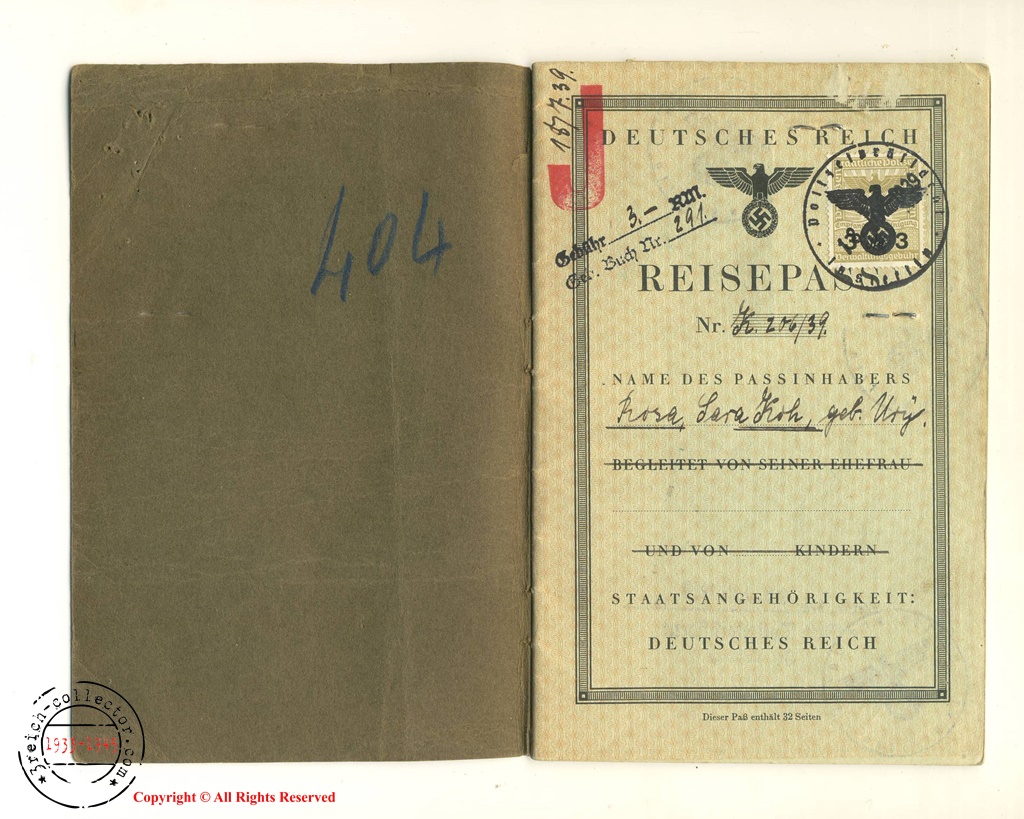 404
18/7.39.
J
DEUTSCHES REICH
Gebühr 3.- RM.
Buch Nr. 291.
3 3
Verwaltungsgebühr
REISEPASS
Nr. K. 206/39.
NAME DES PASSINHABERS
Rosa, Sara Koh, geb. Ury.
BEGLEITET VON SEINER EHEFRAU
UND VON KINDERN
STAATSANGEHÖRIGKEIT:
DEUTSCHES REICH
Dieser Paß enthält 32 Seiten
3reich-collector.com
Copyright © All Rights Reserved